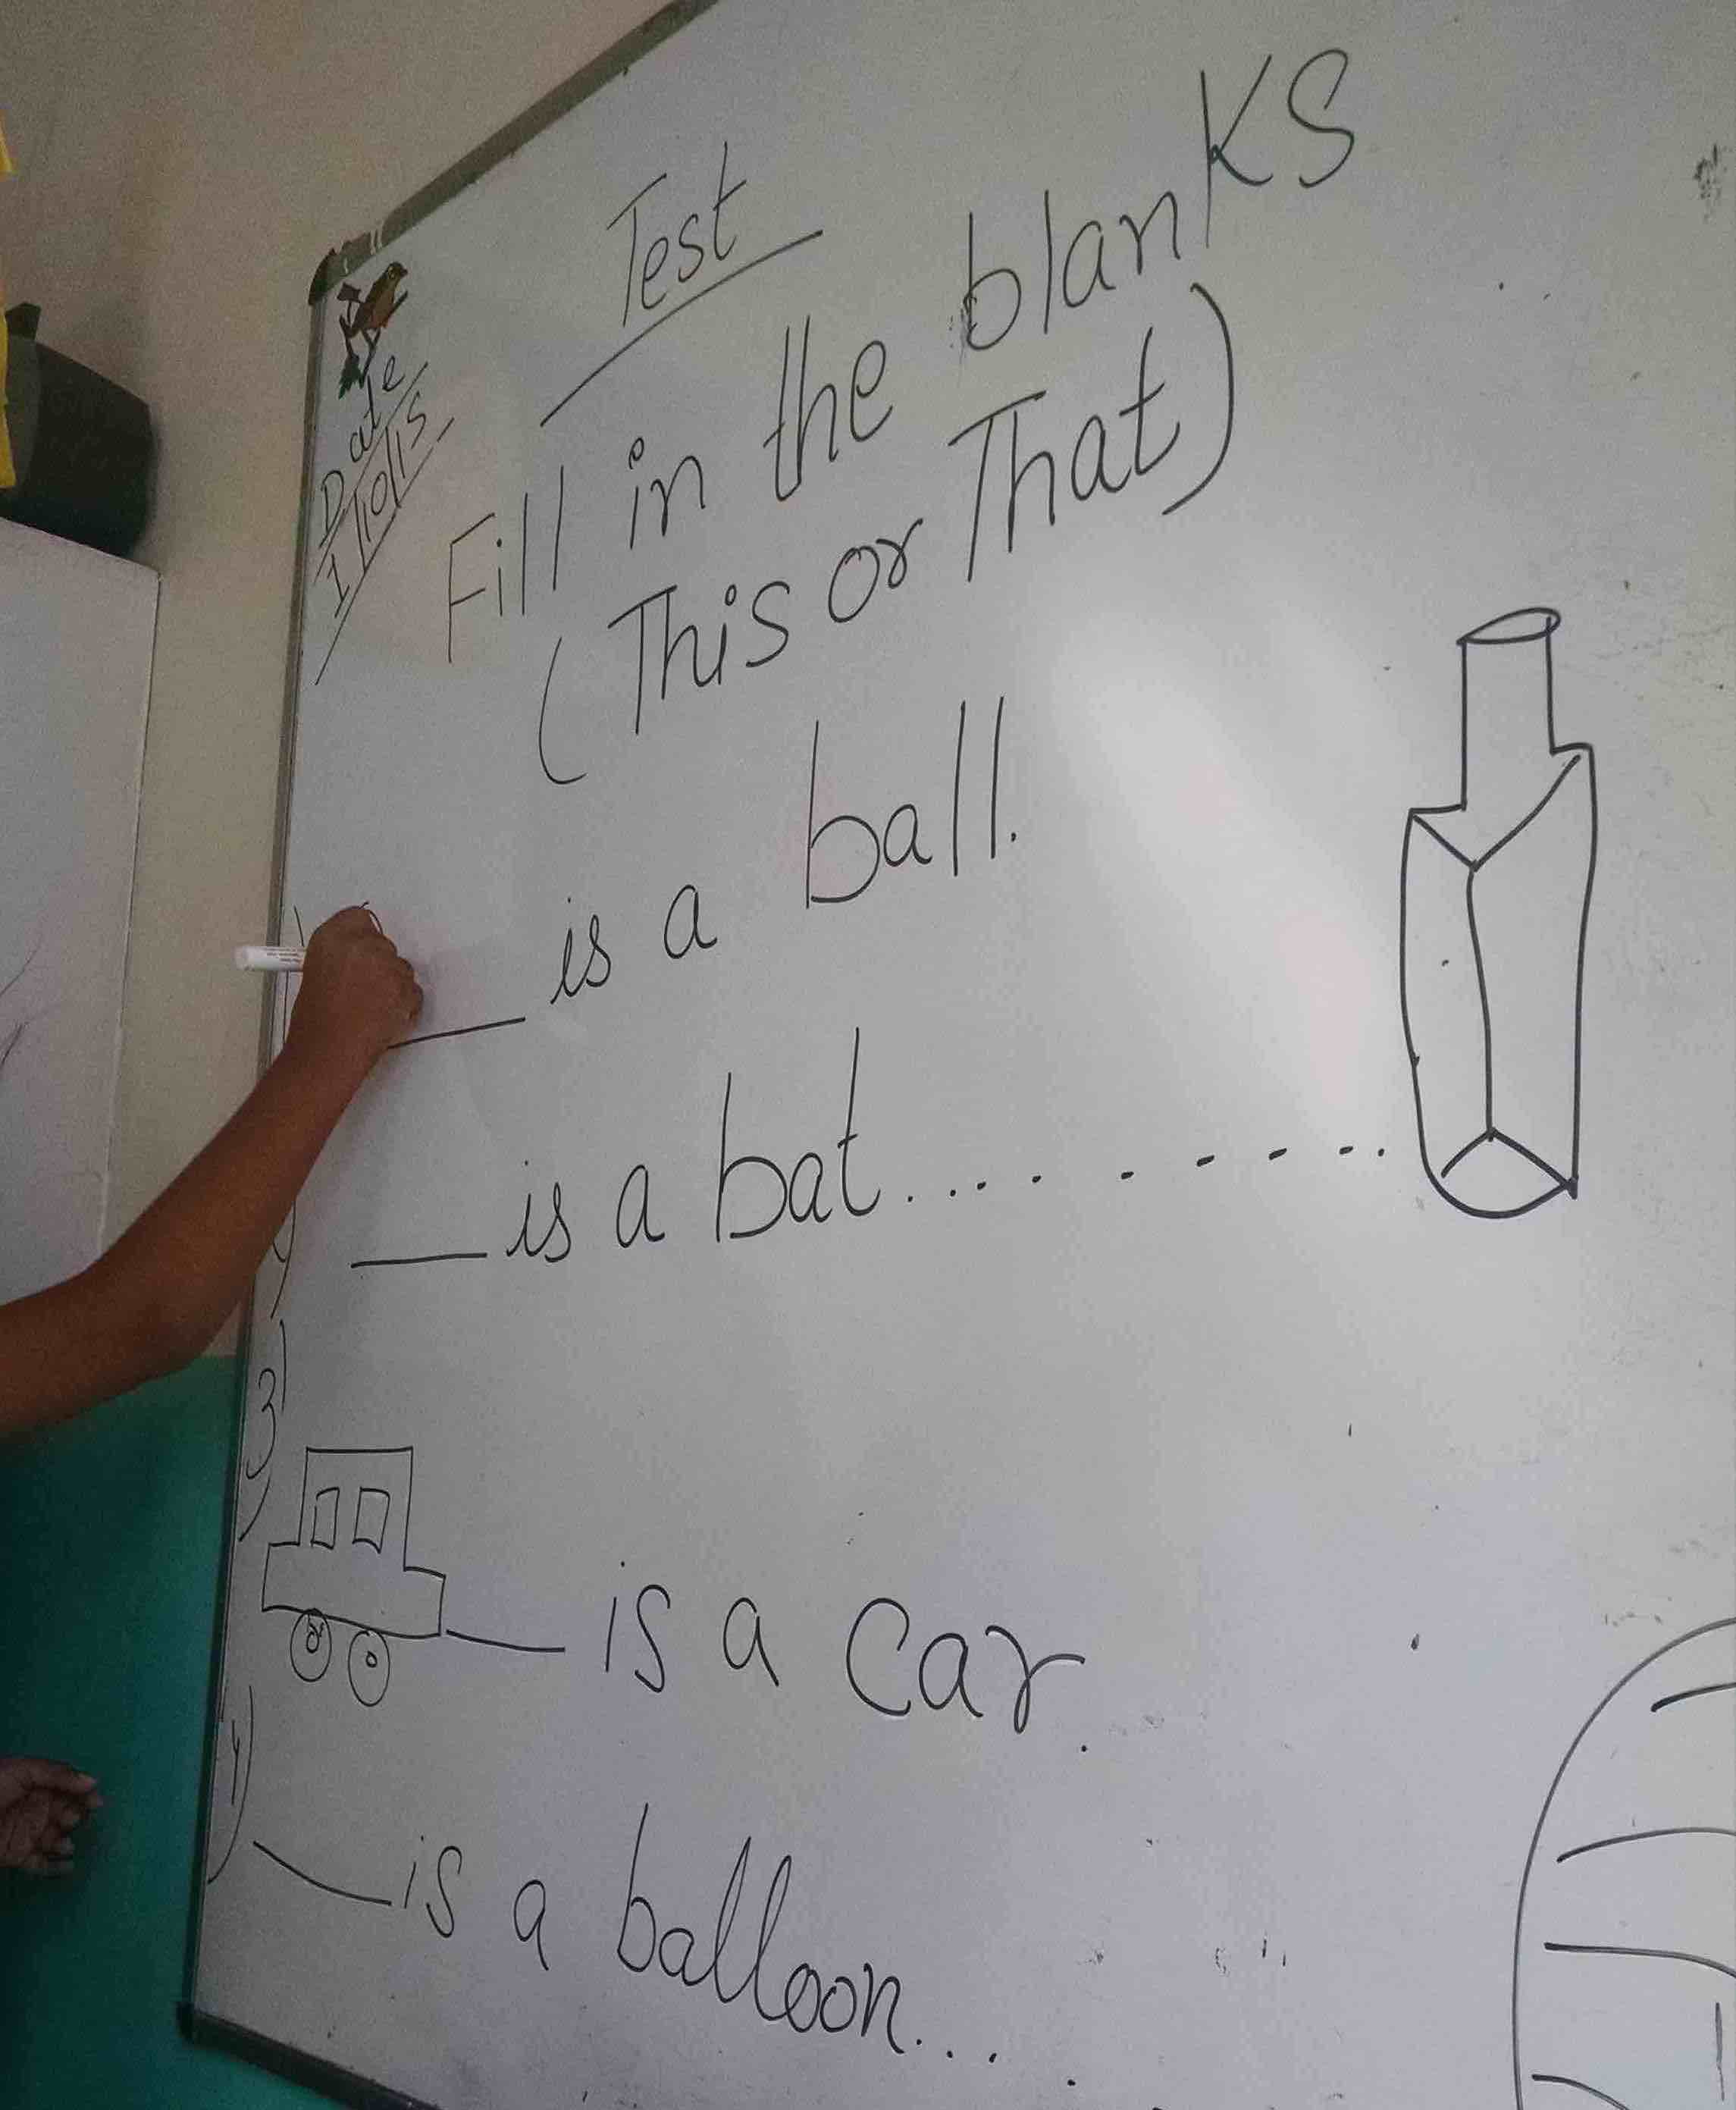 Test
Date
1/10/15
Fill in the blanks
(This or That)
___ is a ball.
___ is a bat.... - - - - - ..
3)
___ is a car.
4) ___ is a balloon...